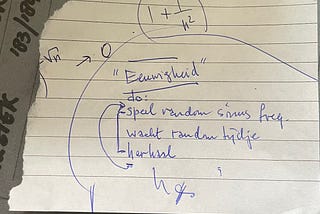 1 + 1/n²
√n → 0
"Eeuwigheid"
do:
speel random sinus freq.
wacht random tijdje
herhaal